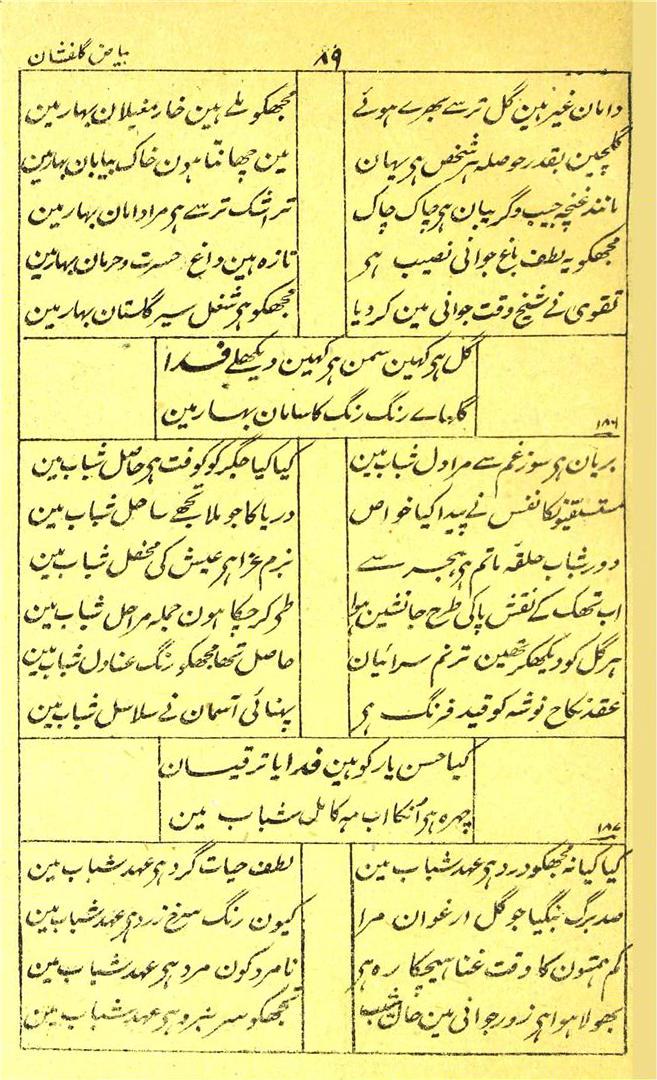 بیاض گلفشان
۸۹
دامان غیر ہین گل تر سے بھرے ہوئے مجھکو ملے ہین خار مغیلان بہار مین
گلچین بقدر حوصلہ ہر شخص ہی یہان مین چھانتا ہون خاک بیابان بہار مین
مانند غنچہ جیب و گریبان ہی چاک چاک تر اشک تر سے ہی مرا دامان بہار مین
مجھکو یہ لطف باغ جوانی نصیب ہی تازہ ہین داغ حسرت و حرمان بہار مین
تقوی نے شیخ وقت جوانی مین کر دیا مجھکو ہی شغل سیر گلستان بہار مین
گل ہی کہین سمن ہی کہین دیکھلے فدا
گلہاے رنگ رنگ کا سامان بہار مین
۱۸۶
بریان ہی سوز غم سے مرا دل شباب مین کیا کیا جگر کو کوفت ہی حاصل شباب مین
نفس نے پیدا کیا خواص دریا کا جو ملا تجھے ساحل شباب مین
دور شباب حلقہ ماتم ہی ہجر سے بزم عزا ہی عیش کی محفل شباب مین
اب تھک کے نقش پا کی طرح جانشین ہوا طی کر چکا ہون جملہ مراحل شباب مین
ہر گل کو دیکھکر تھین ترنم سرائیان حاصل تھا مجھکو رنگ عنادل شباب مین
عقد نکاح نوشہ کو قید فرنگ ہی پہنائی آسمان نے سلاسل شباب مین
کیا حسن یار کو ہین فدایا ترقیان
چہرہ ہی انکا اب مہ کامل شباب مین
۱۸۷
کیا کیا نہ مجھکو درد ہی عہد شباب مین لطف حیات گرد ہی عہد شباب مین
صد برگ بنگیا جو گل ارغوان مرا کیون رنگ سرخ زرد ہی عہد شباب مین
کم ہمتون کا وقت غنا ہیچکارہ ہی نامرد کون مرد ہی عہد شباب مین
بھولا ہوا ہی زور جوانی مین حال شیب مجھکو عہد شباب مین